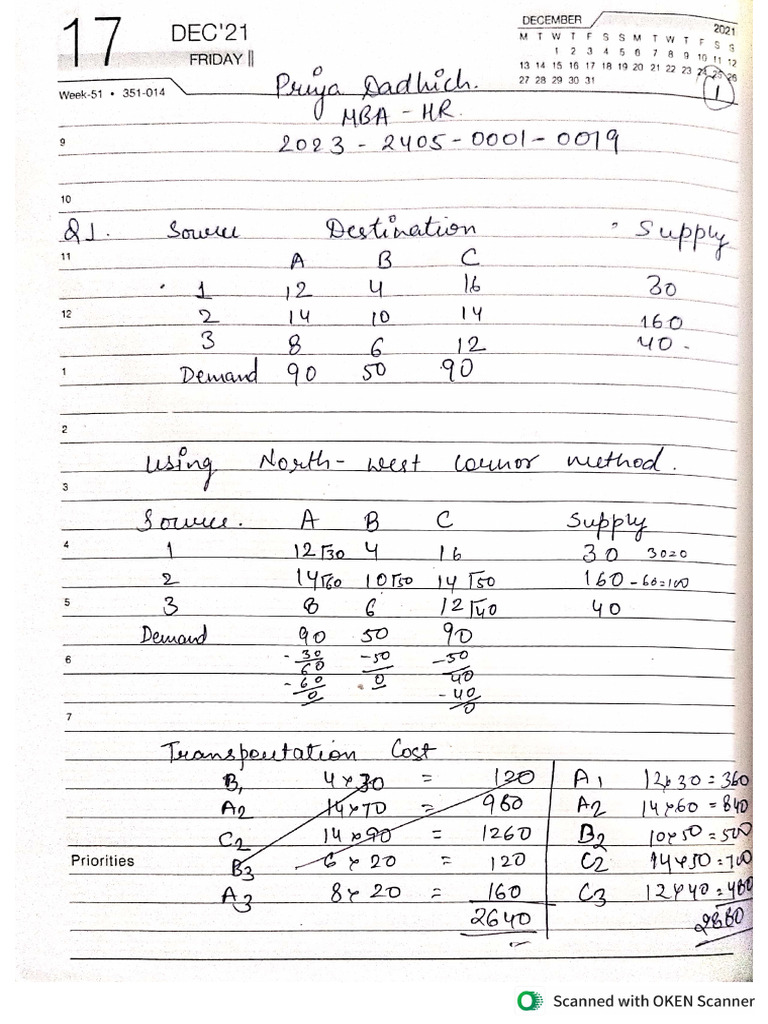 17 DEC'21
FRIDAY
DECEMBER 2021
M T W T F S S M T W T F S S
1 2 3 4 5 6 7 8 9 10 11 12
13 14 15 16 17 18 19 20 21 22 23 24 25 26
27 28 29 30 31
1
Week-51 • 351-014
Priya Dadhich.
MBA - HR.
9
2023 - 2405 - 0001 - 0019
10
Q1. Source Destination Supply
11
A B C
1 12 4 16 30
12
2 14 10 14 160
3 8 6 12 40
1
Demand 90 50 90
2
Using North-West Cornor method.
3
Source. A B C Supply
4
1 12 30 4 16 30 30=0
2 14 60 10 50 14 50 160 - 60=100
5
3 8 6 12 40 40
Demand 90 50 90
-30 -50 -50
6
60 0 40
-60 -40
0 0
7
Transportation Cost
B1 4×30 = 120 A1 12×30 = 360
A2 14×70 = 980 A2 14×60 = 840
C2 14×90 = 1260 B2 10×50 = 500
Priorities
B3 6×20 = 120 C2 14×50 = 700
A3 8×20 = 160 C3 12×40 = 480
2640 2880
Scanned with OKEN Scanner